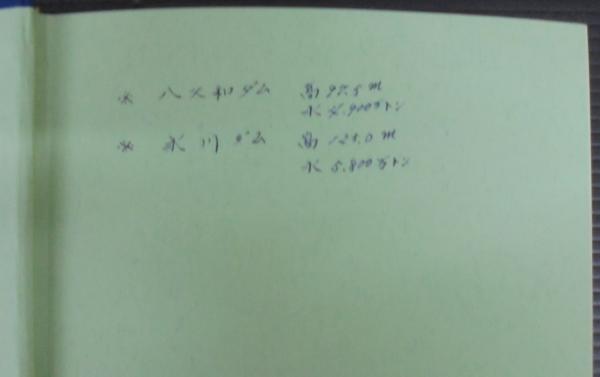 ※ 八久和ダム 高 97.5m
水 4.900万トン
※ 氷川ダム 高 125.0m
水 5.800万トン